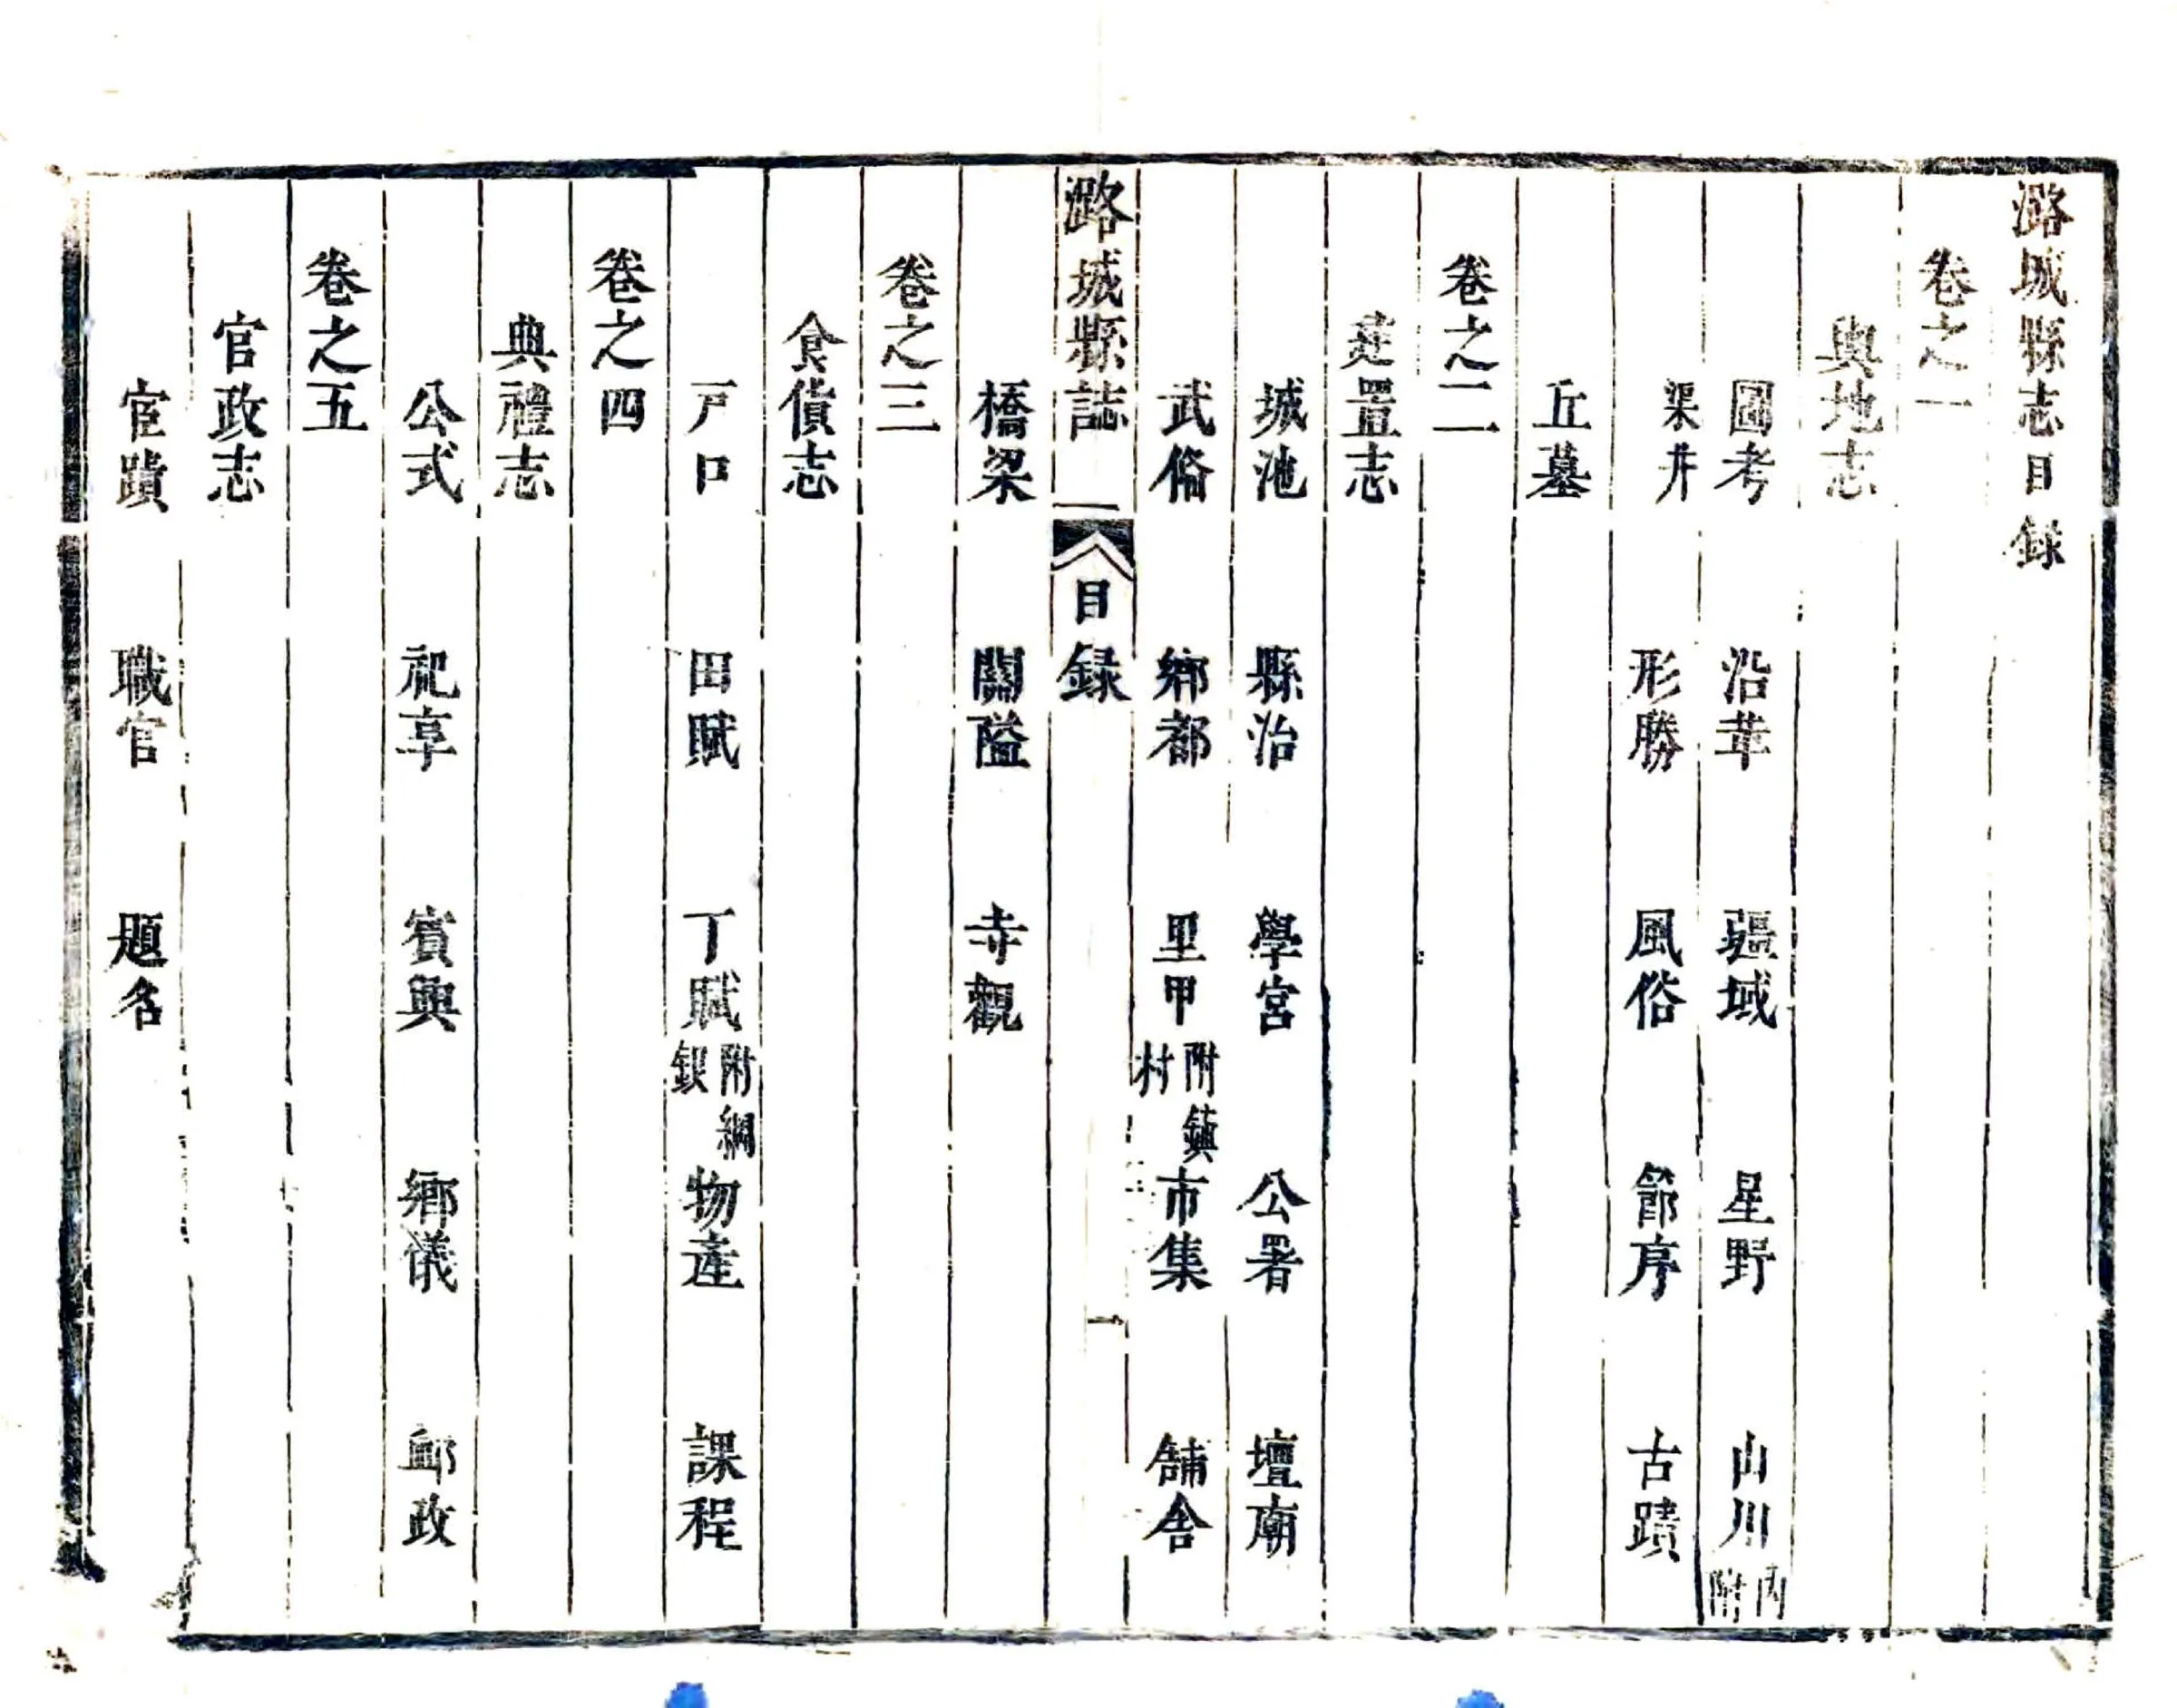 潞城縣志目録
卷之一
輿地志
圖考 沿革 疆域 星野 山川 內附
渠井 形勝 風俗 節序 古蹟
丘墓
卷之二
建置志
城池 縣治 學宮 公署 壇廟
武俻 鄉都 里甲 附鎮村 市集 舖舍
潞城縣誌 目録 一
橋梁 關隘 寺觀
卷之三
食貨志
戶口 田賦 丁賦 附綱銀 物產 課程
卷之四
典禮志
公式 祀享 賓興 鄉儀 卹政
卷之五
官政志
宦蹟 職官 題名